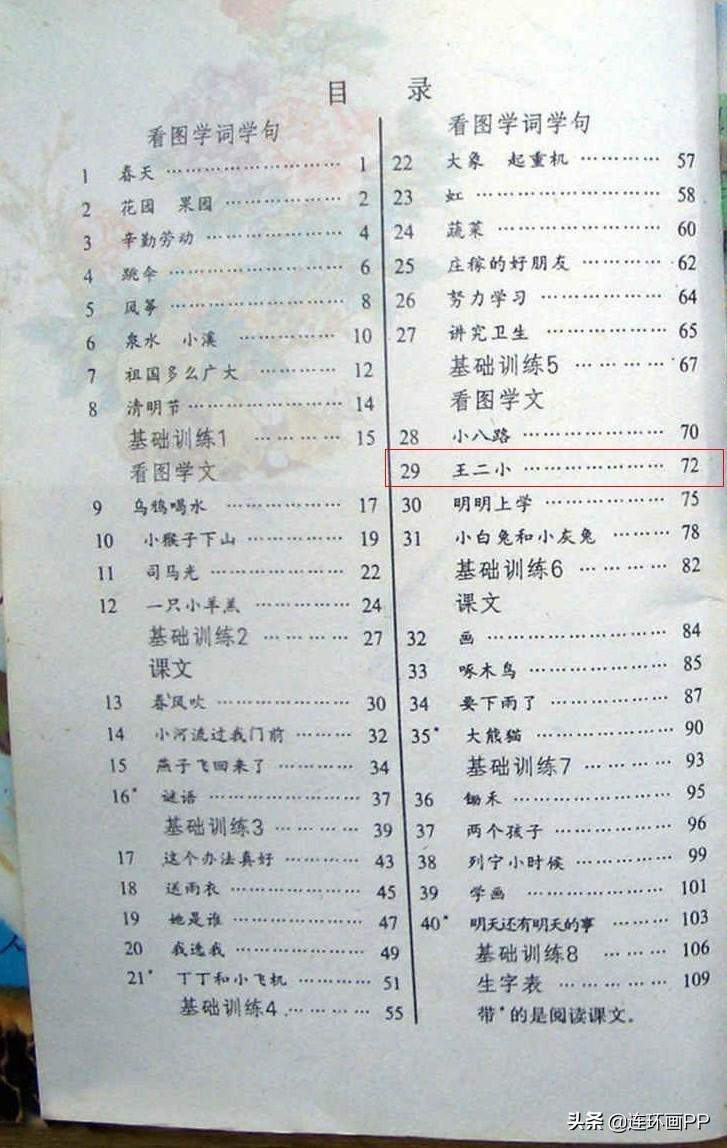 目 录
看图学词学句
1 春天 …………………… 1
2 花园 果园 …………… 2
3 辛勤劳动 ……………… 4
4 跳伞 …………………… 6
5 风筝 …………………… 8
6 泉水 小溪 …………… 10
7 祖国多么广大 ………… 12
8 清明节 ………………… 14
基础训练1 ………… 15
看图学文
9 乌鸦喝水 ……………… 17
10 小猴子下山 …………… 19
11 司马光 ………………… 22
12 一只小羊羔 …………… 24
基础训练2 ………… 27
课文
13 春风吹 ………………… 30
14 小河流过我门前 ……… 32
15 燕子飞回来了 ………… 34
16* 谜语 …………………… 37
基础训练3 ………… 39
17 这个办法真好 ………… 43
18 送雨衣 ………………… 45
19 她是谁 ………………… 47
20 我选我 ………………… 49
21* 丁丁和小飞机 ………… 51
基础训练4 ………… 55
看图学词学句
22 大象 起重机 ………… 57
23 虹 ……………………… 58
24 蔬菜 …………………… 60
25 庄稼的好朋友 ………… 62
26 努力学习 ……………… 64
27 讲究卫生 ……………… 65
基础训练5 ………… 67
看图学文
28 小八路 ………………… 70
29 王二小 ………………… 72
30 明明上学 ……………… 75
31 小白兔和小灰兔 ……… 78
基础训练6 ………… 82
课文
32 画 ……………………… 84
33 啄木鸟 ………………… 85
34 要下雨了 ……………… 87
35* 大熊猫 ………………… 90
基础训练7 ………… 93
36 锄禾 …………………… 95
37 两个孩子 ……………… 96
38 列宁小时候 …………… 99
39 学画 …………………… 101
40* 明天还有明天的事 ……… 103
基础训练8 ……… 106
生字表 …………… 109
带*的是阅读课文。
头条 @连环画PP